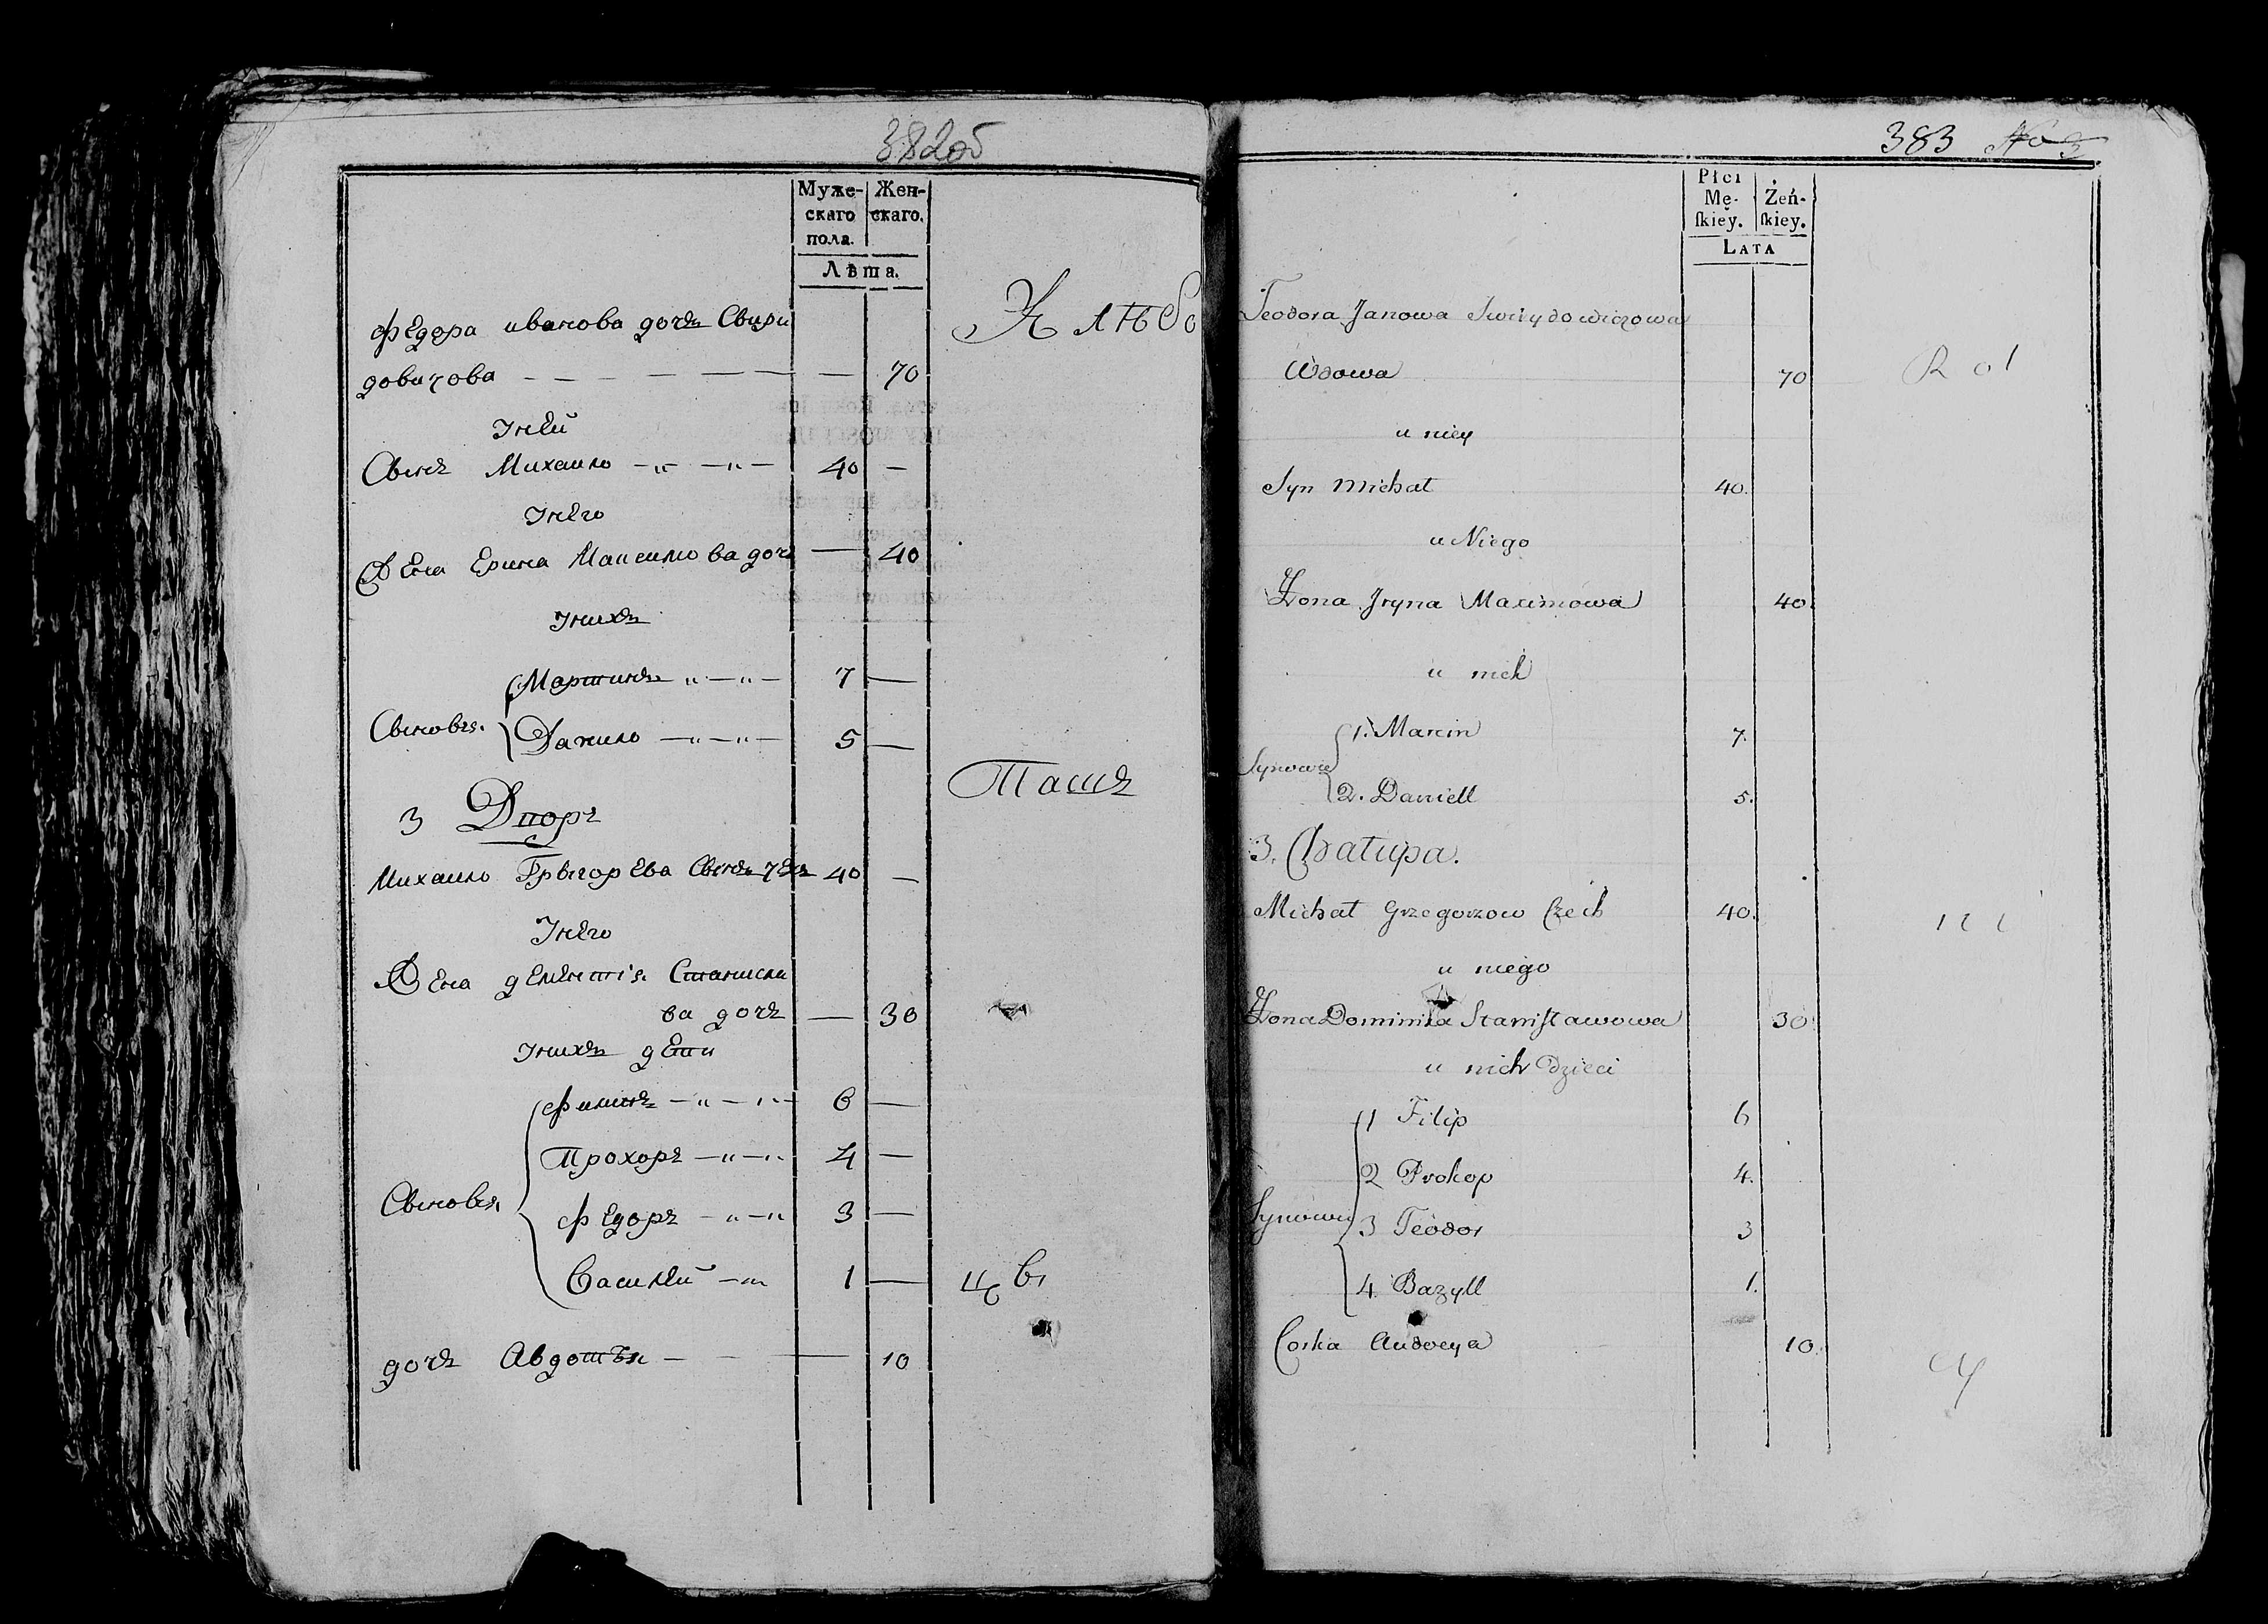 382об
Муже-
скаго
пола.
Жен-
скаго.
Лѣта.
федора иванова дочъ Свири
довичова 70
Унеи
Сынъ Михаило 40 —
Унего
Жена Ерина Максимова доч — 40
Унихъ
Сыновя.
Мартинъ 7 —
Данило 5 —
3 Дворъ
Михаило Грыгорева Сынъ чехъ 40 —
Унего
Жена Станисла
ва дочъ — 30
Унихъ дети
Сыновя
филипъ 6 —
Прохоръ 4 —
федоръ 3 —
Василий 1 —
дочъ Авдотъя — 10
Клѣбо
Пашъ
383 No 3
Płci
Mę-
ſkiey.
Żeń-
ſkiey.
LATA
Teodora Janowa Swirydowiczowa
Wdowa 70
u niey
Syn Michał 40.
u Niego
Żona Jryna Maximowa 40.
u nich
Synowie
1. Marcin 7.
2. Daniell 5.
3. Chałupa.
Michał Grzegorzow Czech 40.
u niego
Żona Dominika Staniſławowa 30
u nich Dzieci
Synowie
1 Filip 6
2 Prokop 4.
3 Teodor 3
4. Bazyll 1.
Corka Audocya 10.